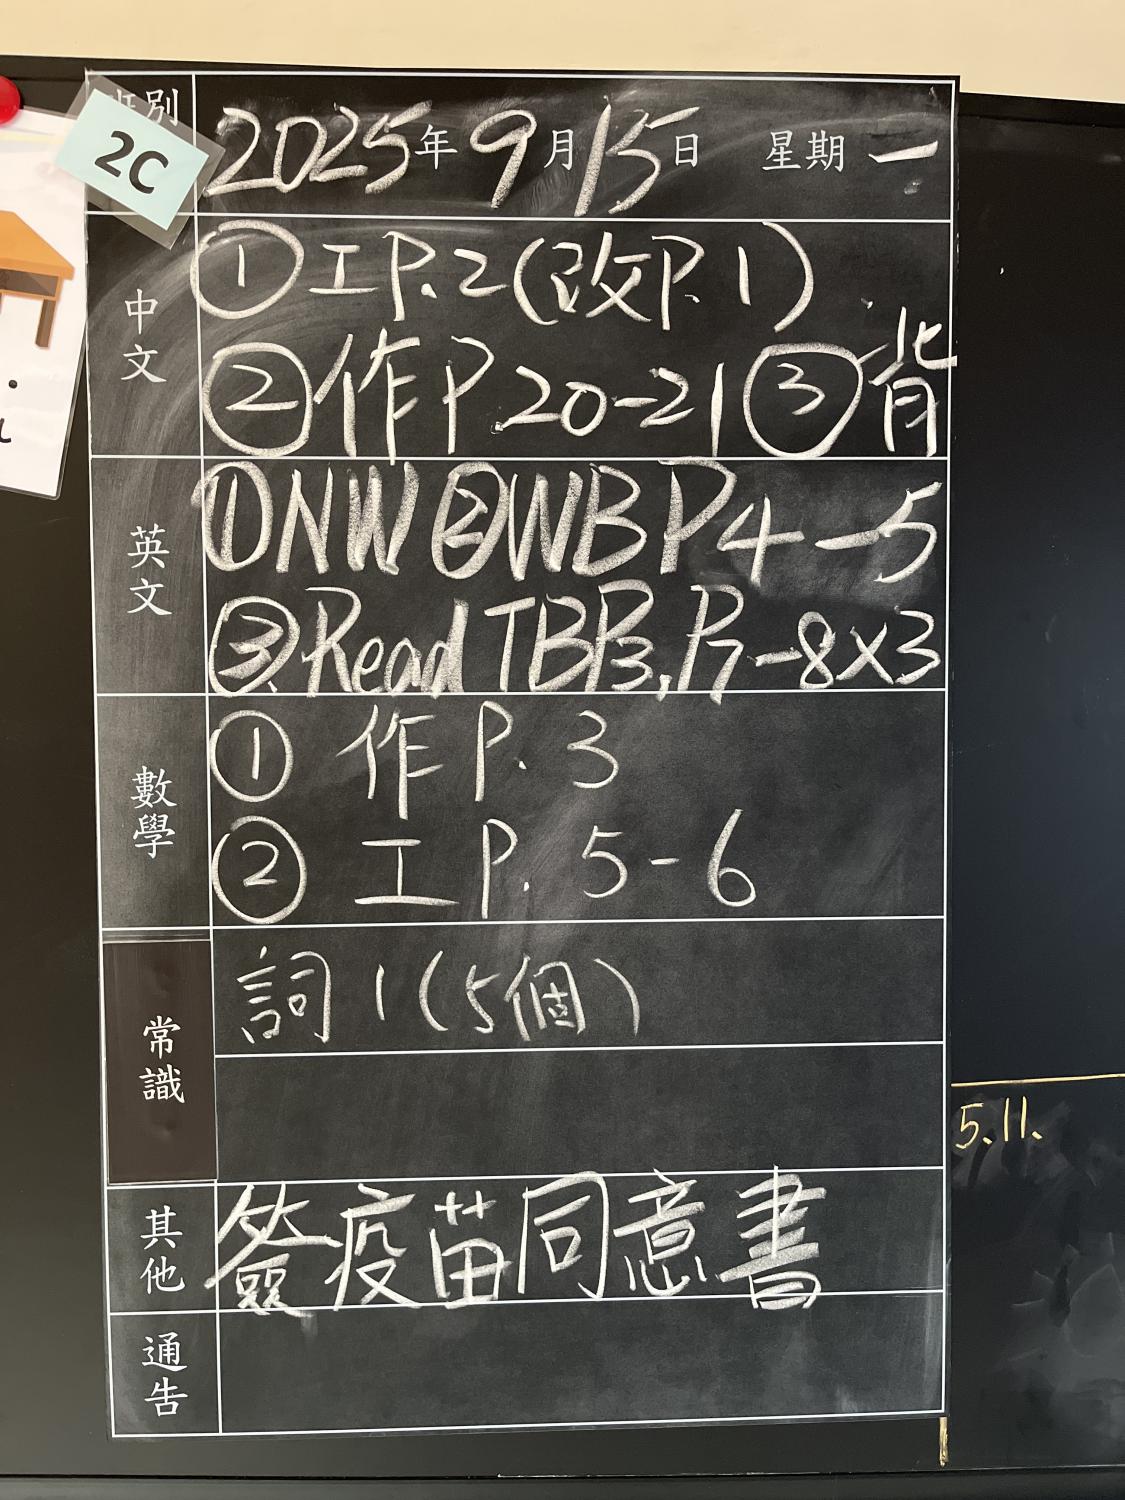 班別
2C
2025年9月15日 星期一
中文
①工P.2(改P.1)
②作P.20-21③背
英文
①NW②WB P4-5
③Read TBP3,P7-8x3
數學
① 作 P. 3
② 工 P. 5-6
常識
詞1(5個)
其他
簽疫苗同意書
通告
5.11.